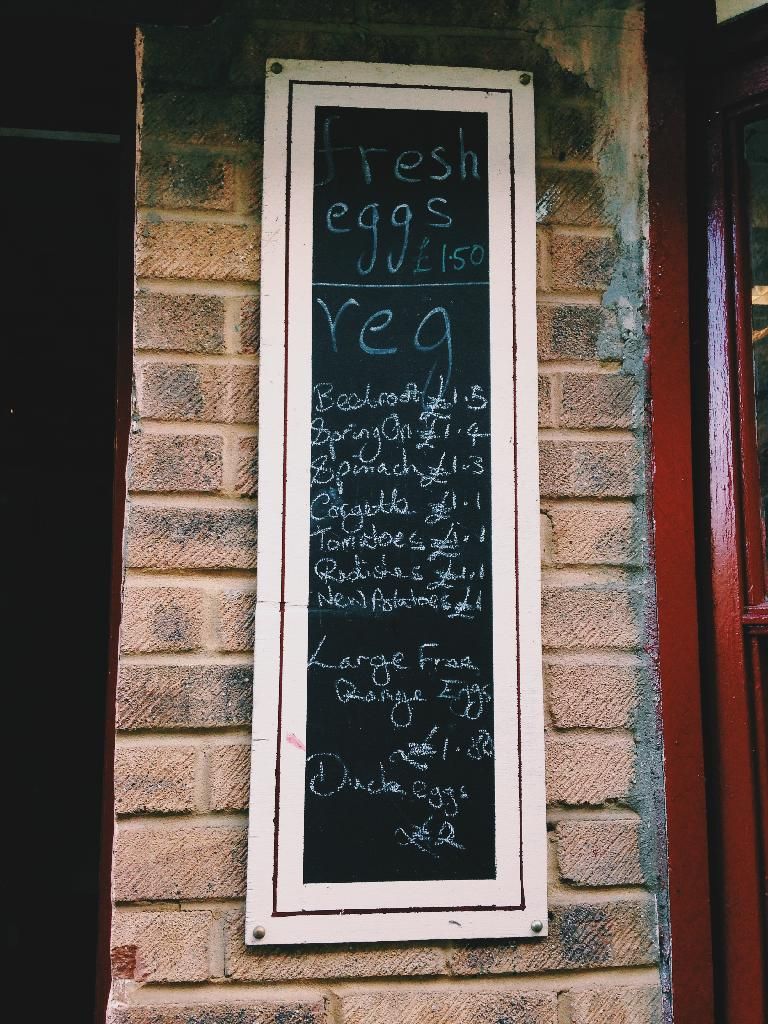 fresh
eggs
£1.50
veg
Beetroot £1.5
Spring On £1.4
Spinach £1.3
Corgette £1.1
Tomatoes £1.1
Radishes £1.1
New Potatoes £1
Large Free
Range Eggs
Duck eggs
£2